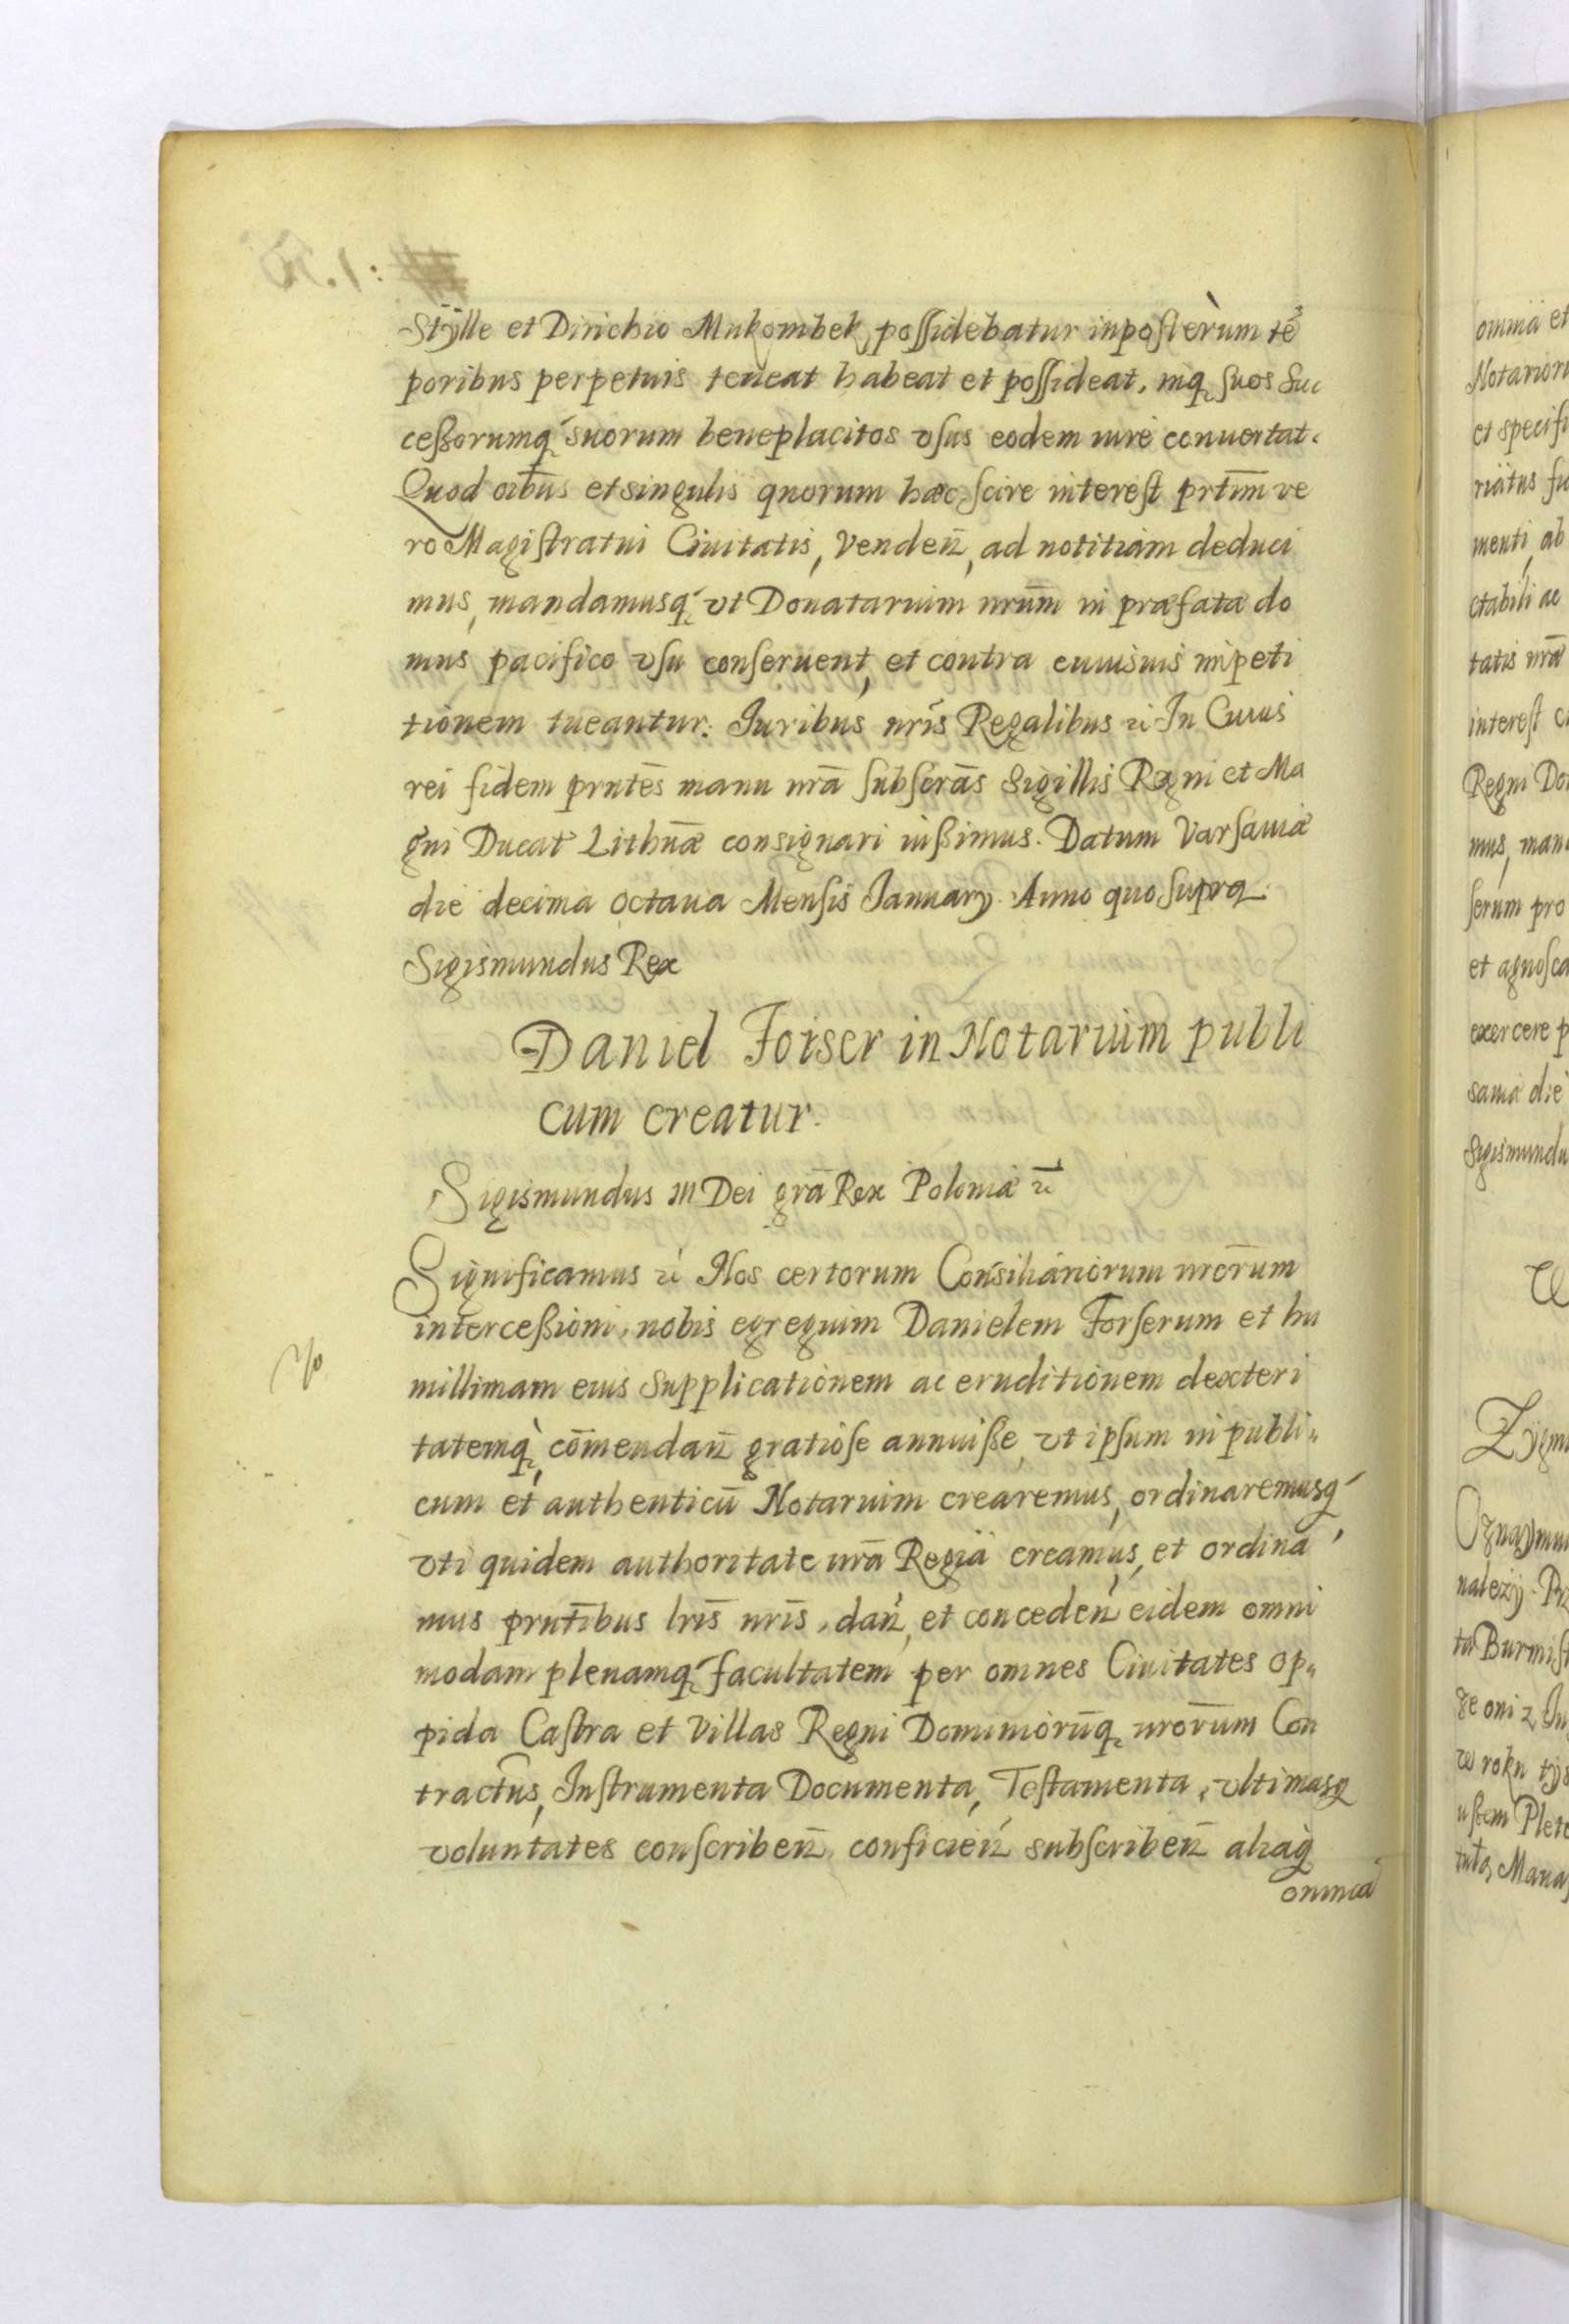 Stÿlle et Dirichio Mukombek, possidebatur inposterùm tē
poribus perpetuis teneat habeat et possideat, inq₃ suos Suc
cessorumq́₃ suorum beneplacitos vsus eodem iure conuertat.
Quod oībus et singulis quorum hæc scire interest prtīm ve
ro Magistratui Ciuitatis, Venden̄, ad notitiam deduci
mus, mandamusq́₃ vt Donatarium nrūm in præfatæ do
mus pacifico vsu conseruent, et contra cuiusuis impeti
tionem tueantur. Iuribus nrīs Regalibus &c In Cuius
rei fidem prntēs manu nrā subscrās Sigillis Regni et Ma
gni Ducat Lithuæ consignari iussimus. Datum Varsauiæ
die decima octaua Mensis Ianuarÿ. Anno quo supra.
Sigismundus Rex
Daniel Forser in Notarium publi
cum creatur.
Sigismundus III Dei grā Rex Poloniæ &c
Significamus &c Nos certorum Consiliariorum nrorūm
intercessioni, nobis egregium Danielem Forserum et hu
millimam eius Supplicationem ac eruditionem dexteri
tatemq̀₃, com̄endan̄ gratiose annuisse, vt ipsum in publi„
cum et authenticū Notarium crearemus, ordinaremusq́
vti quidem authoritate nrā Regiā creamus, et ordina
mus prntībus lrīs nrīs, dan̄, et conceden̄ eidem omni
modam plenamq́₃ facultatem per omnes Ciuitates op„
pida Castra et Villas Regni Dominiorūq₃ nrorūm Con
tractus, Instrumenta Documenta, Testamenta, vltimasq
voluntates conscriben̄, conficien̄ subscriben̄ aliaq̀
omnia
omnia et
Notarior
et specifi
menti, ab
ctabili ac
tatis nrā
interest
Regni Do
mus, man
serum pro
et agnosca
exercere p
sauiæ die
Sigismundu
Zÿgm
Oznaÿmu
należÿ. Prz
ta Burmist
że oni z
w roku tÿs